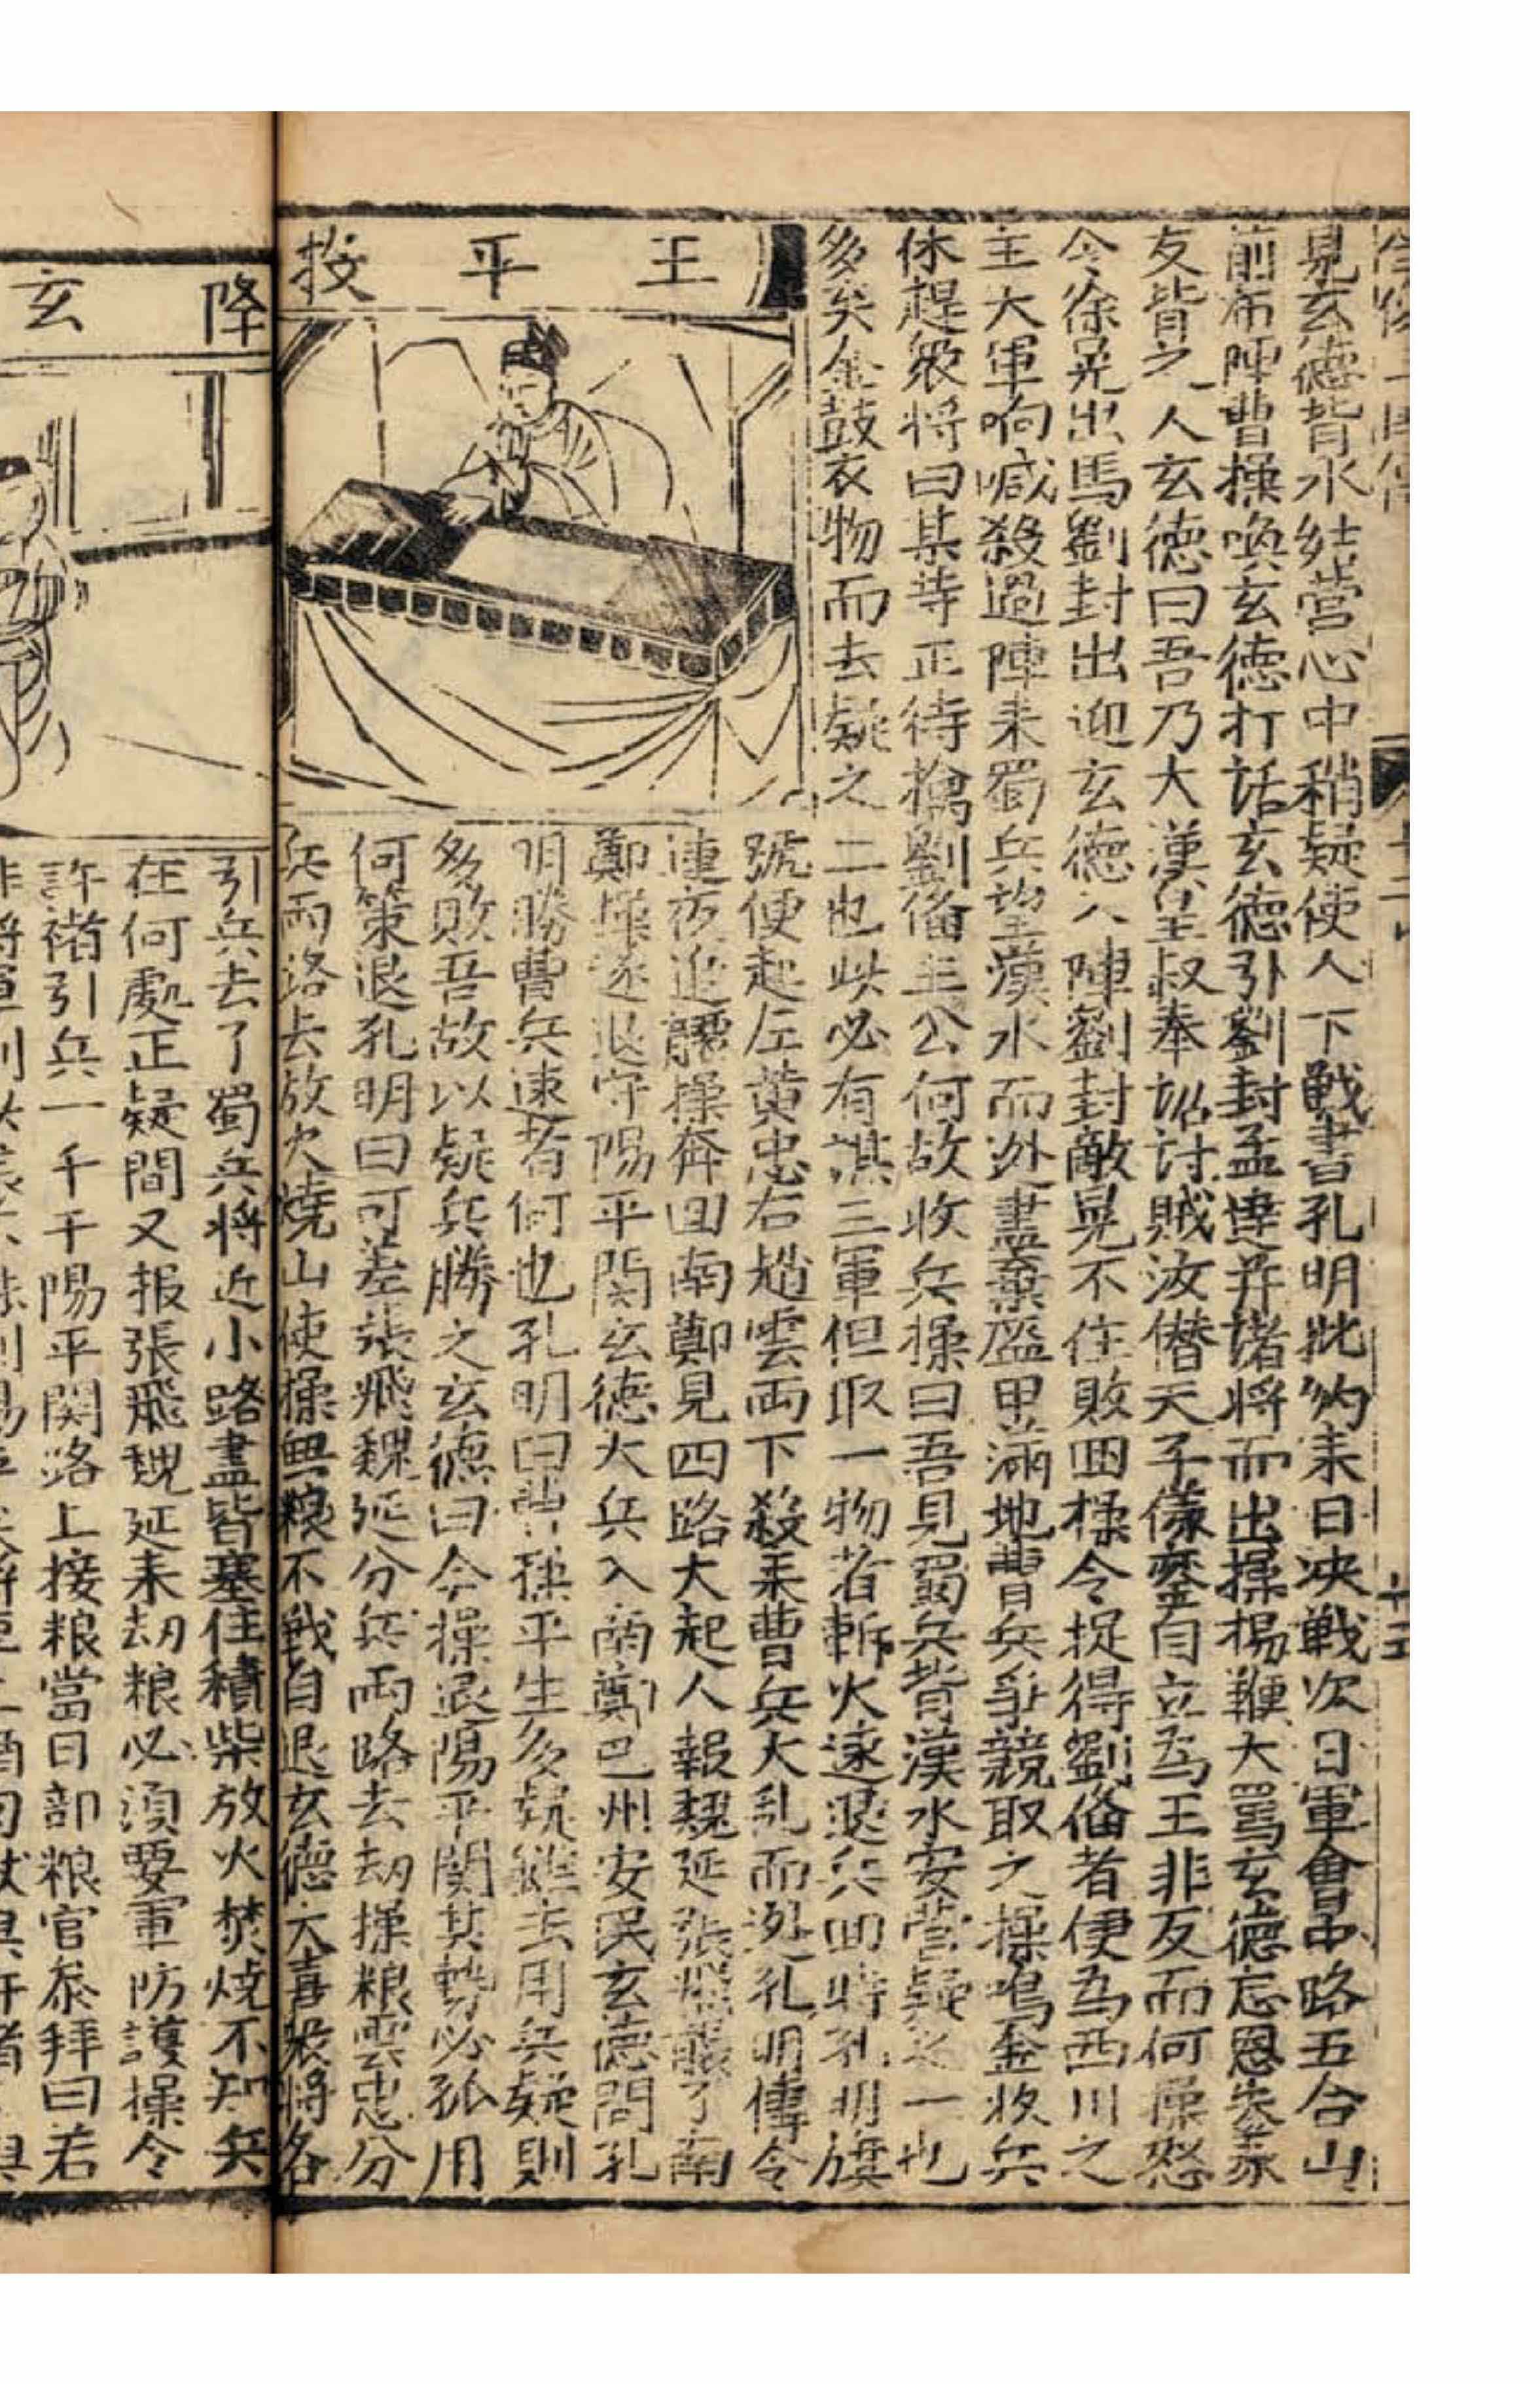 王平投
見玄德背水結营心中稍疑使人下戰書孔明批約来日决戰次日軍會中路五合山
前布陣曹操喚玄德打話玄德引劉封孟達并諸将而出操揚鞭大罵玄德忘恩失義
反背之人玄德曰吾乃大漢皇叔奉詔討賊汝僭天子儀鑾自立為王非反而何操怒
令徐晃出馬劉封出迎玄德入陣劉封敵晃不住敗回操令捉得劉俻者便為西川之
主大軍响喊殺過陣来蜀兵望漢水而迯盡棄盔甲滿地曹兵爭競取之操鳴金收兵
休趕衆将曰某等正待擒劉俻主公何故收兵操曰吾見蜀兵背漢水安营疑之一也
多矣金鼓衣物而去疑之二也此必有謀三軍但取一物者斬火速退兵回時孔明旗
號便起左黄忠右趙雲兩下殺来曹兵大乱而迯孔明傳令
連夜追操奔回南鄭見四路大起人報魏延張飛襲了南
鄭操遂退守陽平関玄德大兵入南鄭巴州安民玄德問孔
明勝曹兵速者何也孔明曰操平生多疑雖去用兵疑則
多敗吾故以疑兵勝之玄德曰今操退陽平関其勢必孤用
何策退孔明曰可差張飛魏延分兵兩路去刼操粮雲忠分
兵兩路去放火燒山使操無粮不戰自退玄德大喜衆将各
降玄
引兵去了蜀兵将近小路盡皆塞住積柴放火焚燒不知兵
在何處正疑間又报張飛魏延来刼粮必須要軍防護操令
許褚引兵一千于陽平関路上接粮當日部粮官叅拜曰若